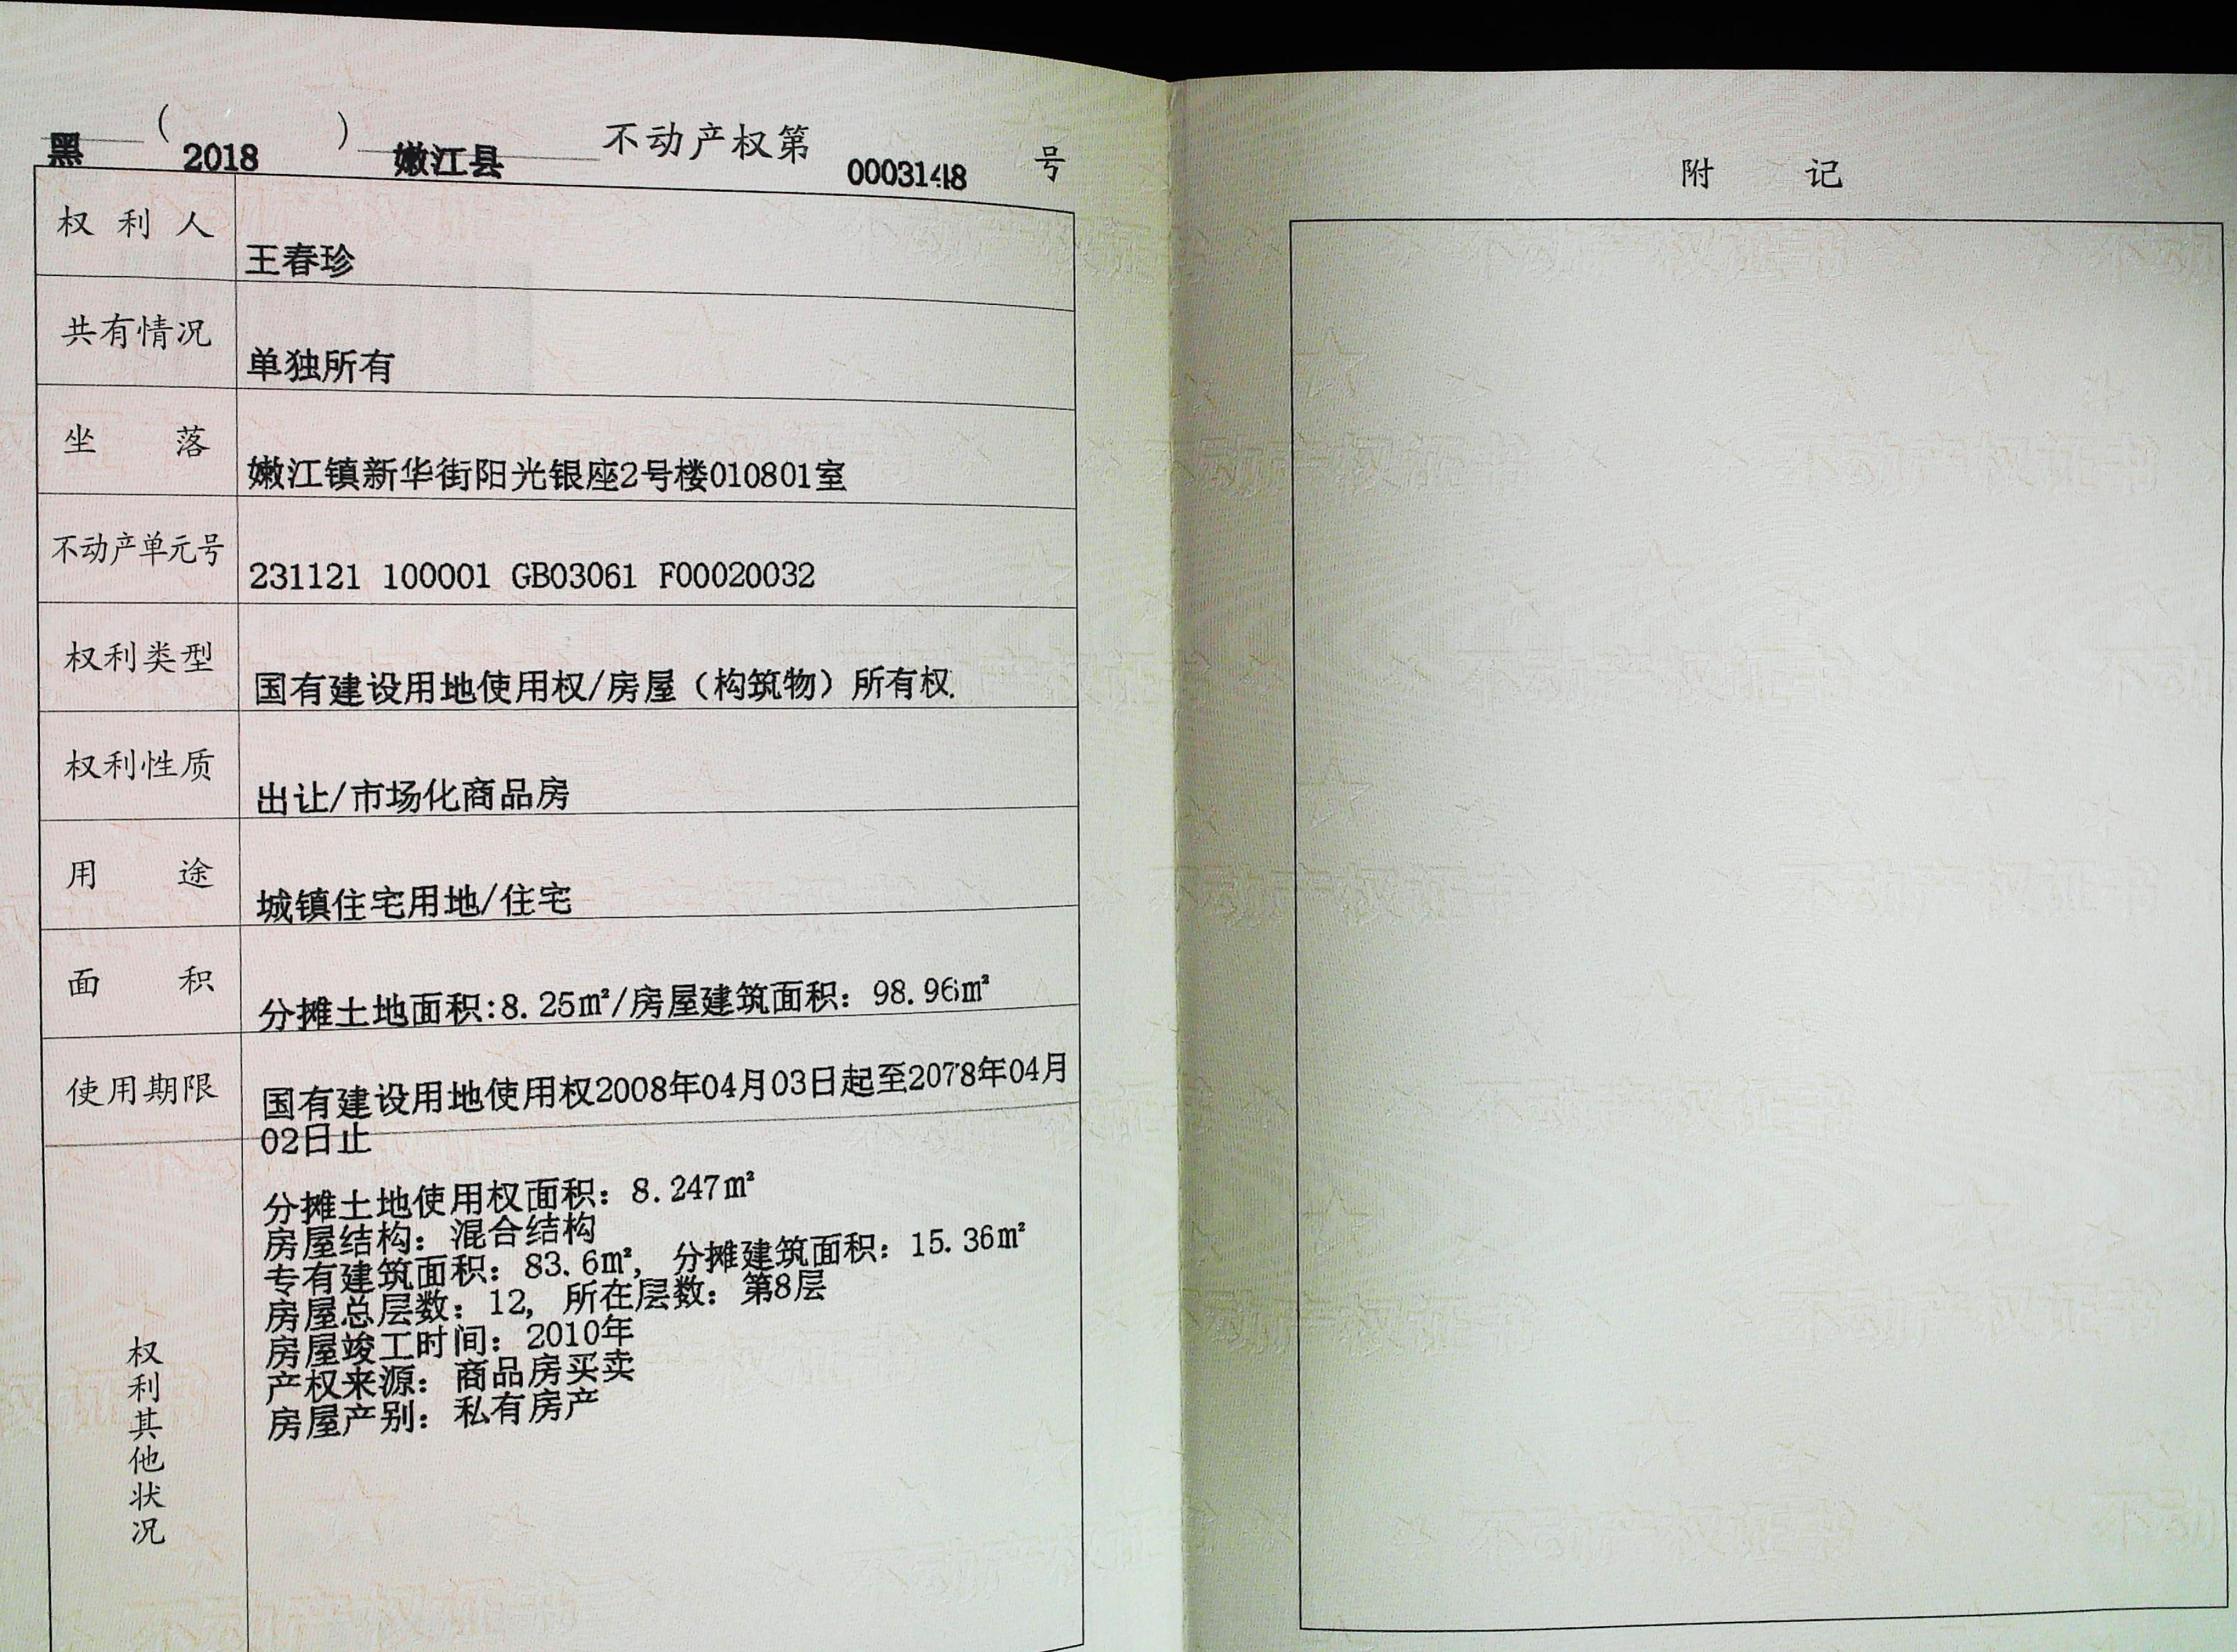 黑（2018）嫩江县不动产权第0003148号
权利人 王春珍
共有情况 单独所有
坐落 嫩江镇新华街阳光银座2号楼010801室
不动产单元号 231121 100001 GB03061 F00020032
权利类型 国有建设用地使用权/房屋（构筑物）所有权
权利性质 出让/市场化商品房
用途 城镇住宅用地/住宅
面积 分摊土地面积:8.25㎡/房屋建筑面积：98.96㎡
使用期限 国有建设用地使用权2008年04月03日起至2078年04月
02日止
权利其他状况
分摊土地使用权面积：8.247㎡
房屋结构：混合结构
专有建筑面积：83.6㎡，分摊建筑面积：15.36㎡
房屋总层数：12，所在层数：第8层
房屋竣工时间：2010年
产权来源：商品房买卖
房屋产别：私有房产
附记